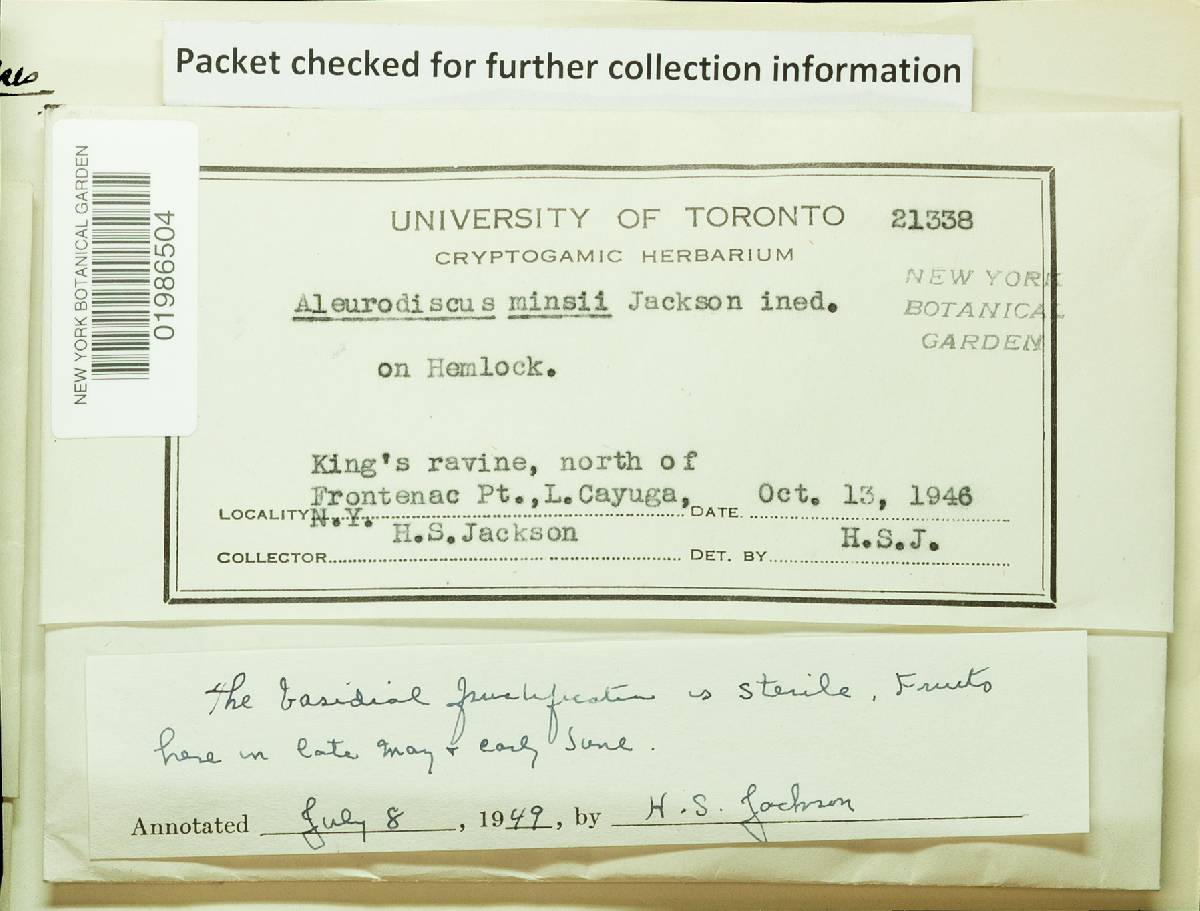 Packet checked for further collection information
NEW YORK BOTANICAL GARDEN
01986504
UNIVERSITY OF TORONTO 21338
CRYPTOGAMIC HERBARIUM
NEW YORK
BOTANICAL
GARDEN
Aleurodiscus minsii Jackson ined.
on Hemlock.
King's ravine, north of
Frontenac Pt.,L.Cayuga,
LOCALITY N.Y. DATE Oct. 13, 1946
COLLECTOR H.S.Jackson DET. BY H.S.J.
the basidial fructification is sterile. Fruits
here in late May & early June.
Annotated July 8, 1949, by H.S. Jackson